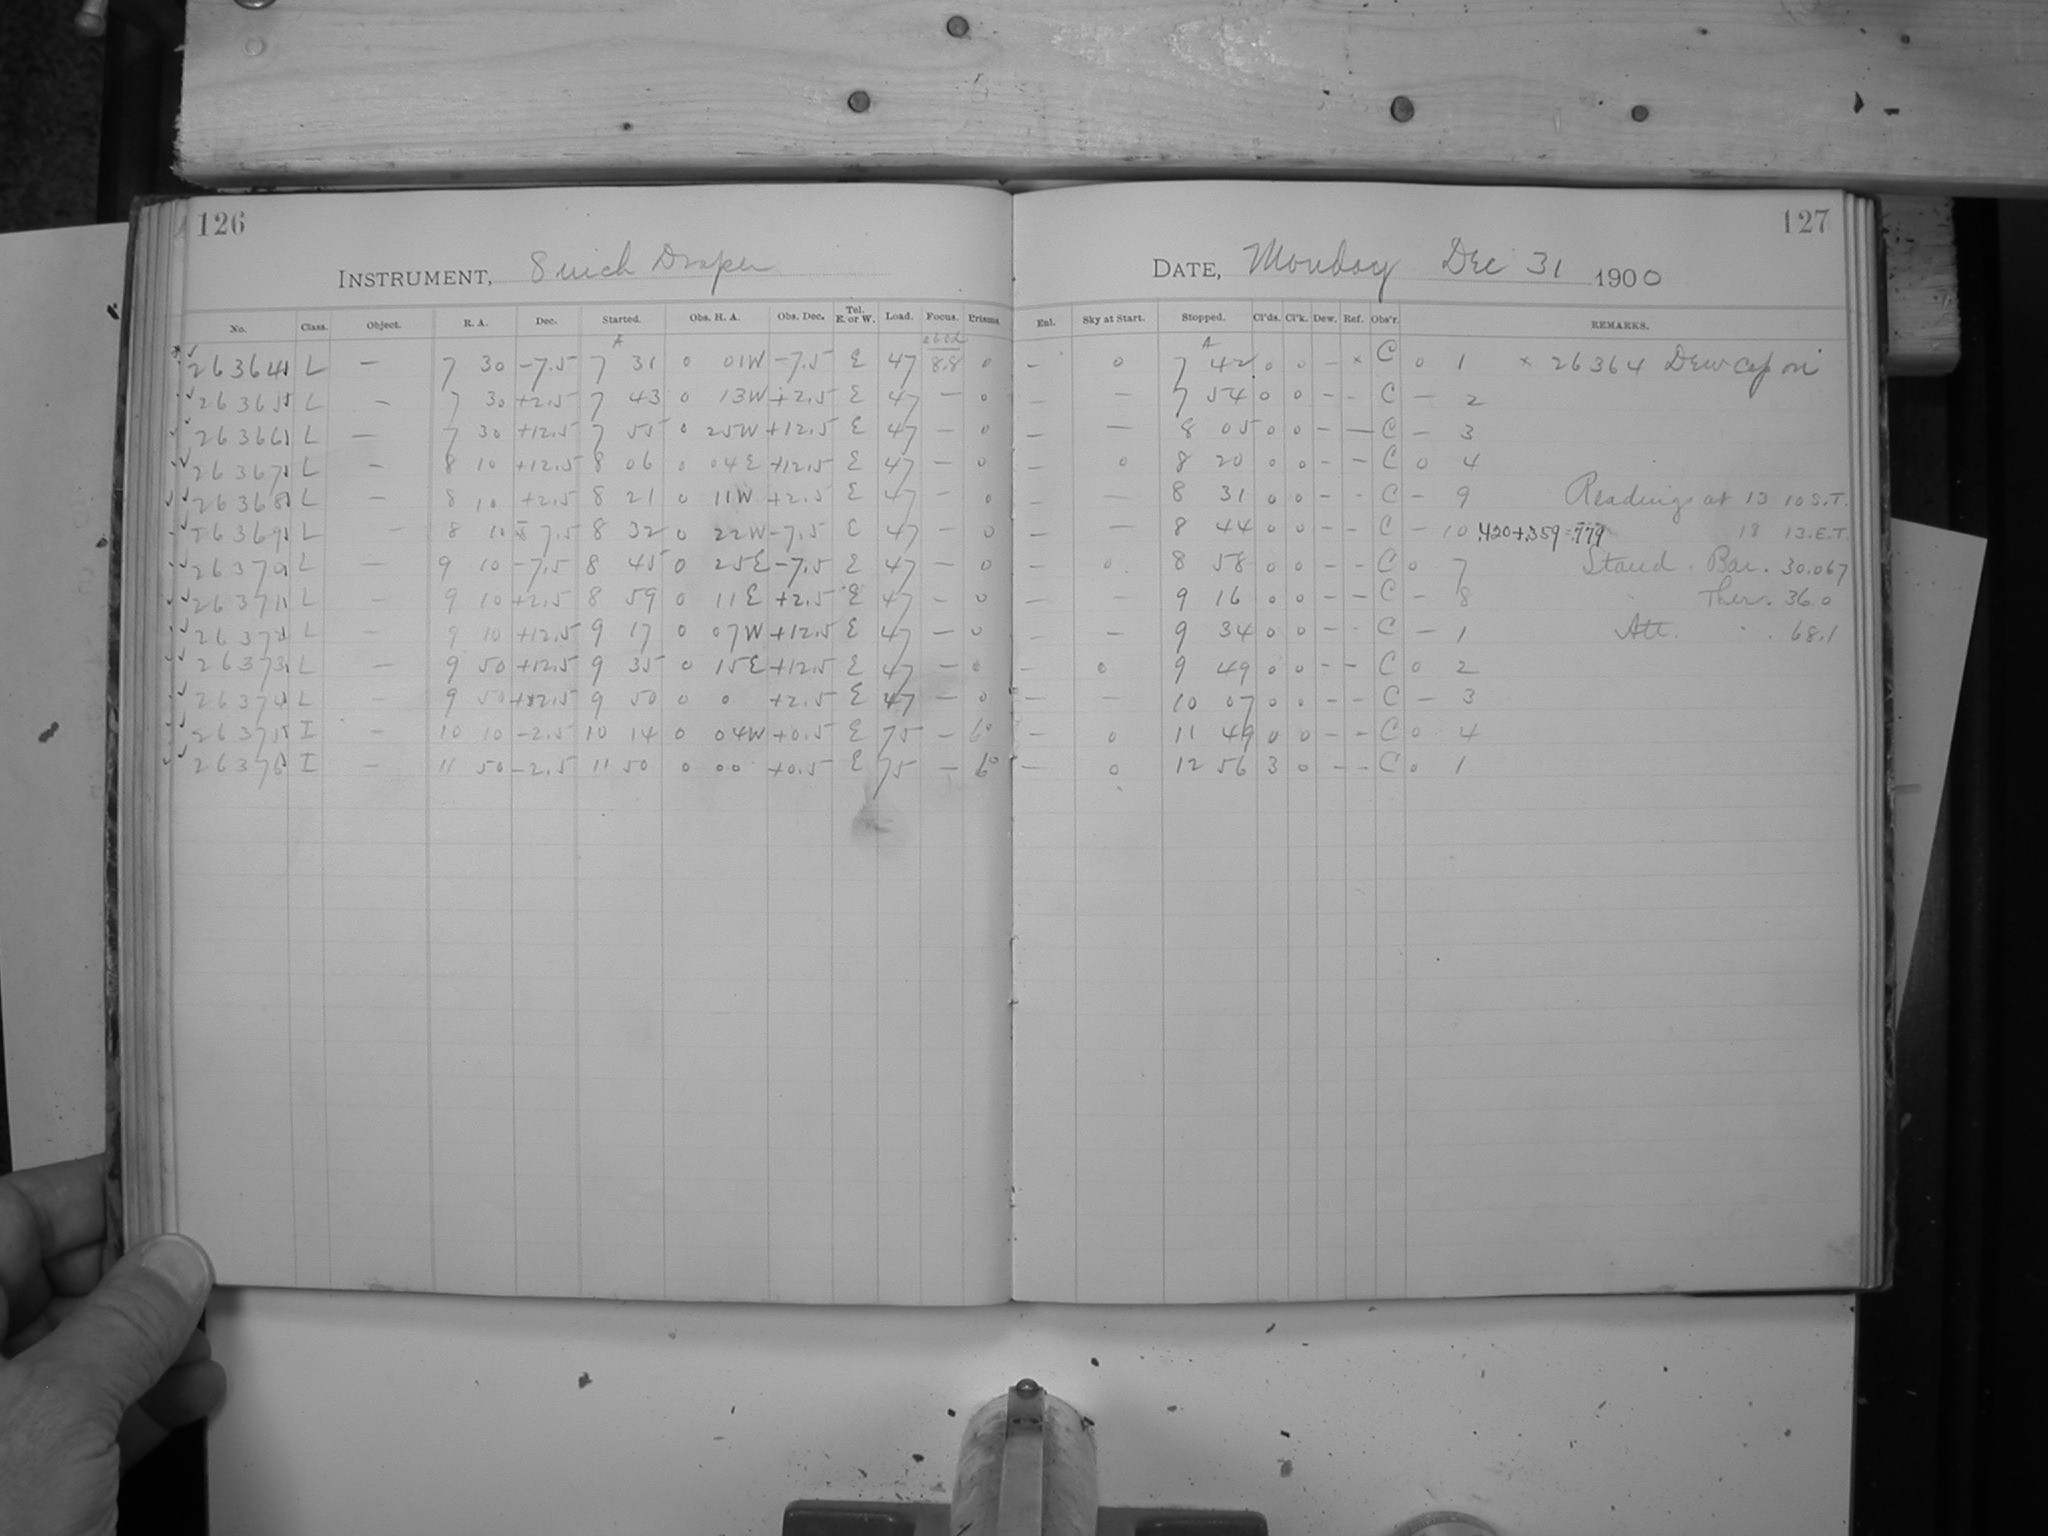 126
INSTRUMENT, 8 inch Draper
No. Class. Object. R. A. Dec. Started. Obs. H. A. Obs. Dec. Tel. E. or W. Load. Focus. Prisms.
26364 L — 7 30 -7.5 7 31 0 01W -7.5 E 47 8.8 0
26365 L — 7 30 +2.5 7 43 0 13W +2.5 E 47 — 0
26366 L — 7 30 +12.5 7 55 0 25W +12.5 E 47 — 0
26367 L — 8 10 +12.5 8 06 0 04E +12.5 E 47 — 0
26368 L — 8 10 +2.5 8 21 0 11W +2.5 E 47 — 0
26369 L — 8 10 -7.5 8 32 0 22W -7.5 E 47 — 0
26370 L — 9 10 -7.5 8 45 0 25E -7.5 E 47 — 0
26371 L — 9 10 +2.5 8 59 0 11E +2.5 E 47 — 0
26372 L — 9 10 +12.5 9 17 0 07W +12.5 E 47 — 0
26373 L — 9 50 +12.5 9 35 0 15E +12.5 E 47 — 0
26374 L — 9 50 +2.5 9 50 0 0 +2.5 E 47 — 0
26375 I — 10 10 -2.5 10 14 0 04W +0.5 E 75 — 6°
26376 I — 11 50 -2.5 11 50 0 00 +0.5 E 75 — 6°
127
DATE, Monday Dec 31 1900
Enl. Sky at Start. Stopped. Cl'ds. Cl'k. Dew. Ref. Obs'r. REMARKS.
— 0 7 42 0 0 — × C 0 1 × 26364 Dew cap on
— — 7 54 0 0 — — C — 2
— — 8 05 0 0 — — C — 3
— 0 8 20 0 0 — — C 0 4
— — 8 31 0 0 — — C — 9 Readings at 13 10 S.T.
— — 8 44 0 0 — — C — 10 .420+.359=.779 18 13 E.T.
— 0 8 58 0 0 — — C 0 7 Stand. Bar. 30.067
— — 9 16 0 0 — — C — 8 " Ther. 36.0
— — 9 34 0 0 — — C — 1 Att. " . 68.1
— 0 9 49 0 0 — — C 0 2
— — 10 07 0 0 — — C — 3
— 0 11 49 0 0 — — C 0 4
— 0 12 56 3 0 — — C 0 1